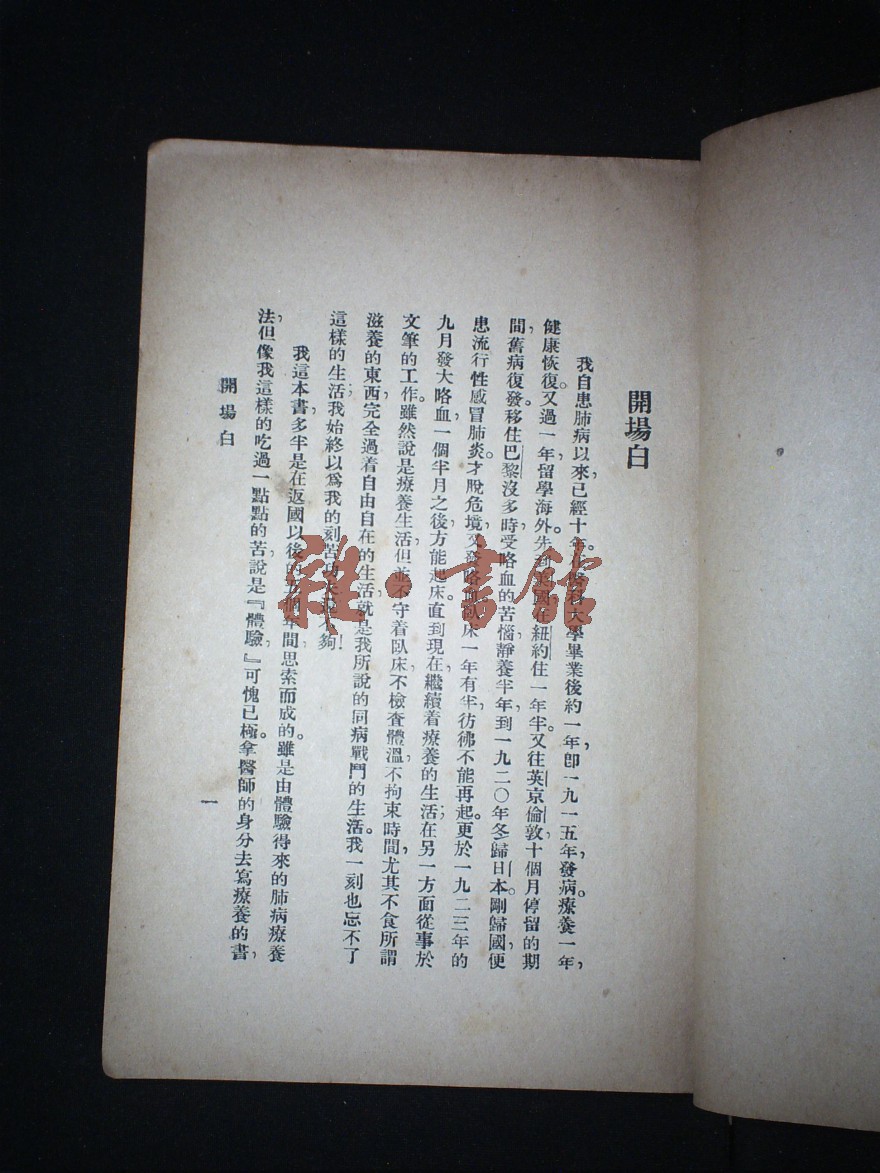 開場白
我自患肺病以來，已經十年。醫科大學畢業後約一年，卽一九一五年發病。療養一年，
健康恢復。又過一年，留學海外。先到美國在紐約住一年半，又往英京倫敦，十個月停留的期
間，舊病復發。移住巴黎沒多時，受咯血的苦惱，靜養半年，到一九二〇年冬，歸日本。剛歸國，便
患流行性感冒肺炎。才脫危境，又發咯血，臥床一年有半，彷彿不能再起。更於一九二三年的
九月發大咯血，一個半月之後，方能起床。直到現在，繼續着療養的生活；在另一方面從事於
文筆的工作。雖然說是療養生活，但並不守着臥床，不檢查體溫，不拘束時間，尤其不食所謂
滋養的東西，完全過着自由自在的生活，就是我所說的同病戰鬥的生活。我一刻也忘不了
這樣的生活；我始終以爲我的刻苦功夫 夠！
我這本書，多半是在返國以後的五個年間，思索而成的。雖是由體驗得來的肺病療養
法，但像我這樣的吃過一點點的苦，說是『體驗，』可愧已極。拿醫師的身分去寫療養的書，
開場白
一
雜·書館